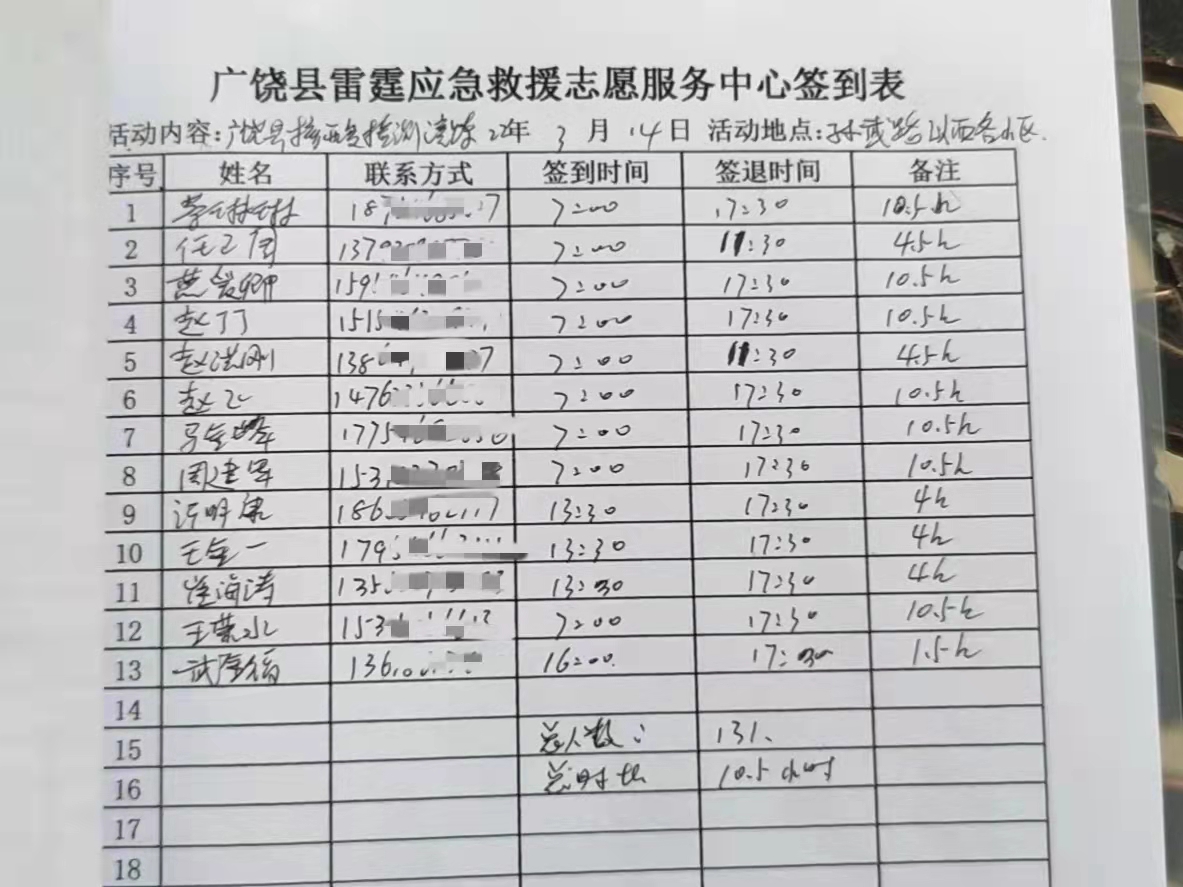 广饶县雷霆应急救援志愿服务中心签到表
活动内容:广饶县核酸检测演练 22年 3月14日 活动地点:孙武路以西各小区.
序号 姓名 联系方式 签到时间 签退时间 备注
1 187 7 7:00 17:30 10.5h
2 任卫国 1379 7:00 11:30 4.5h
3 159 7:00 17:30 10.5h
4 赵丁丁 1515 7:00 17:30 10.5h
5 赵洪刚 138 7 7:00 11:30 4.5h
6 赵 1476 7:00 17:30 10.5h
7 马金峰 1775 7:00 17:30 10.5h
8 周建军 153 7:00 17:30 10.5h
9 许明康 186 117 13:30 17:30 4h
10 王金一 179 13:30 17:30 4h
11 崔海涛 135 13:30 17:30 4h
12 王荣水 153 7:00 17:30 10.5h
13 武 136 16:00 17:30 1.5h
14
15 总人数: 13人
16 总时长 10.5小时
17
18